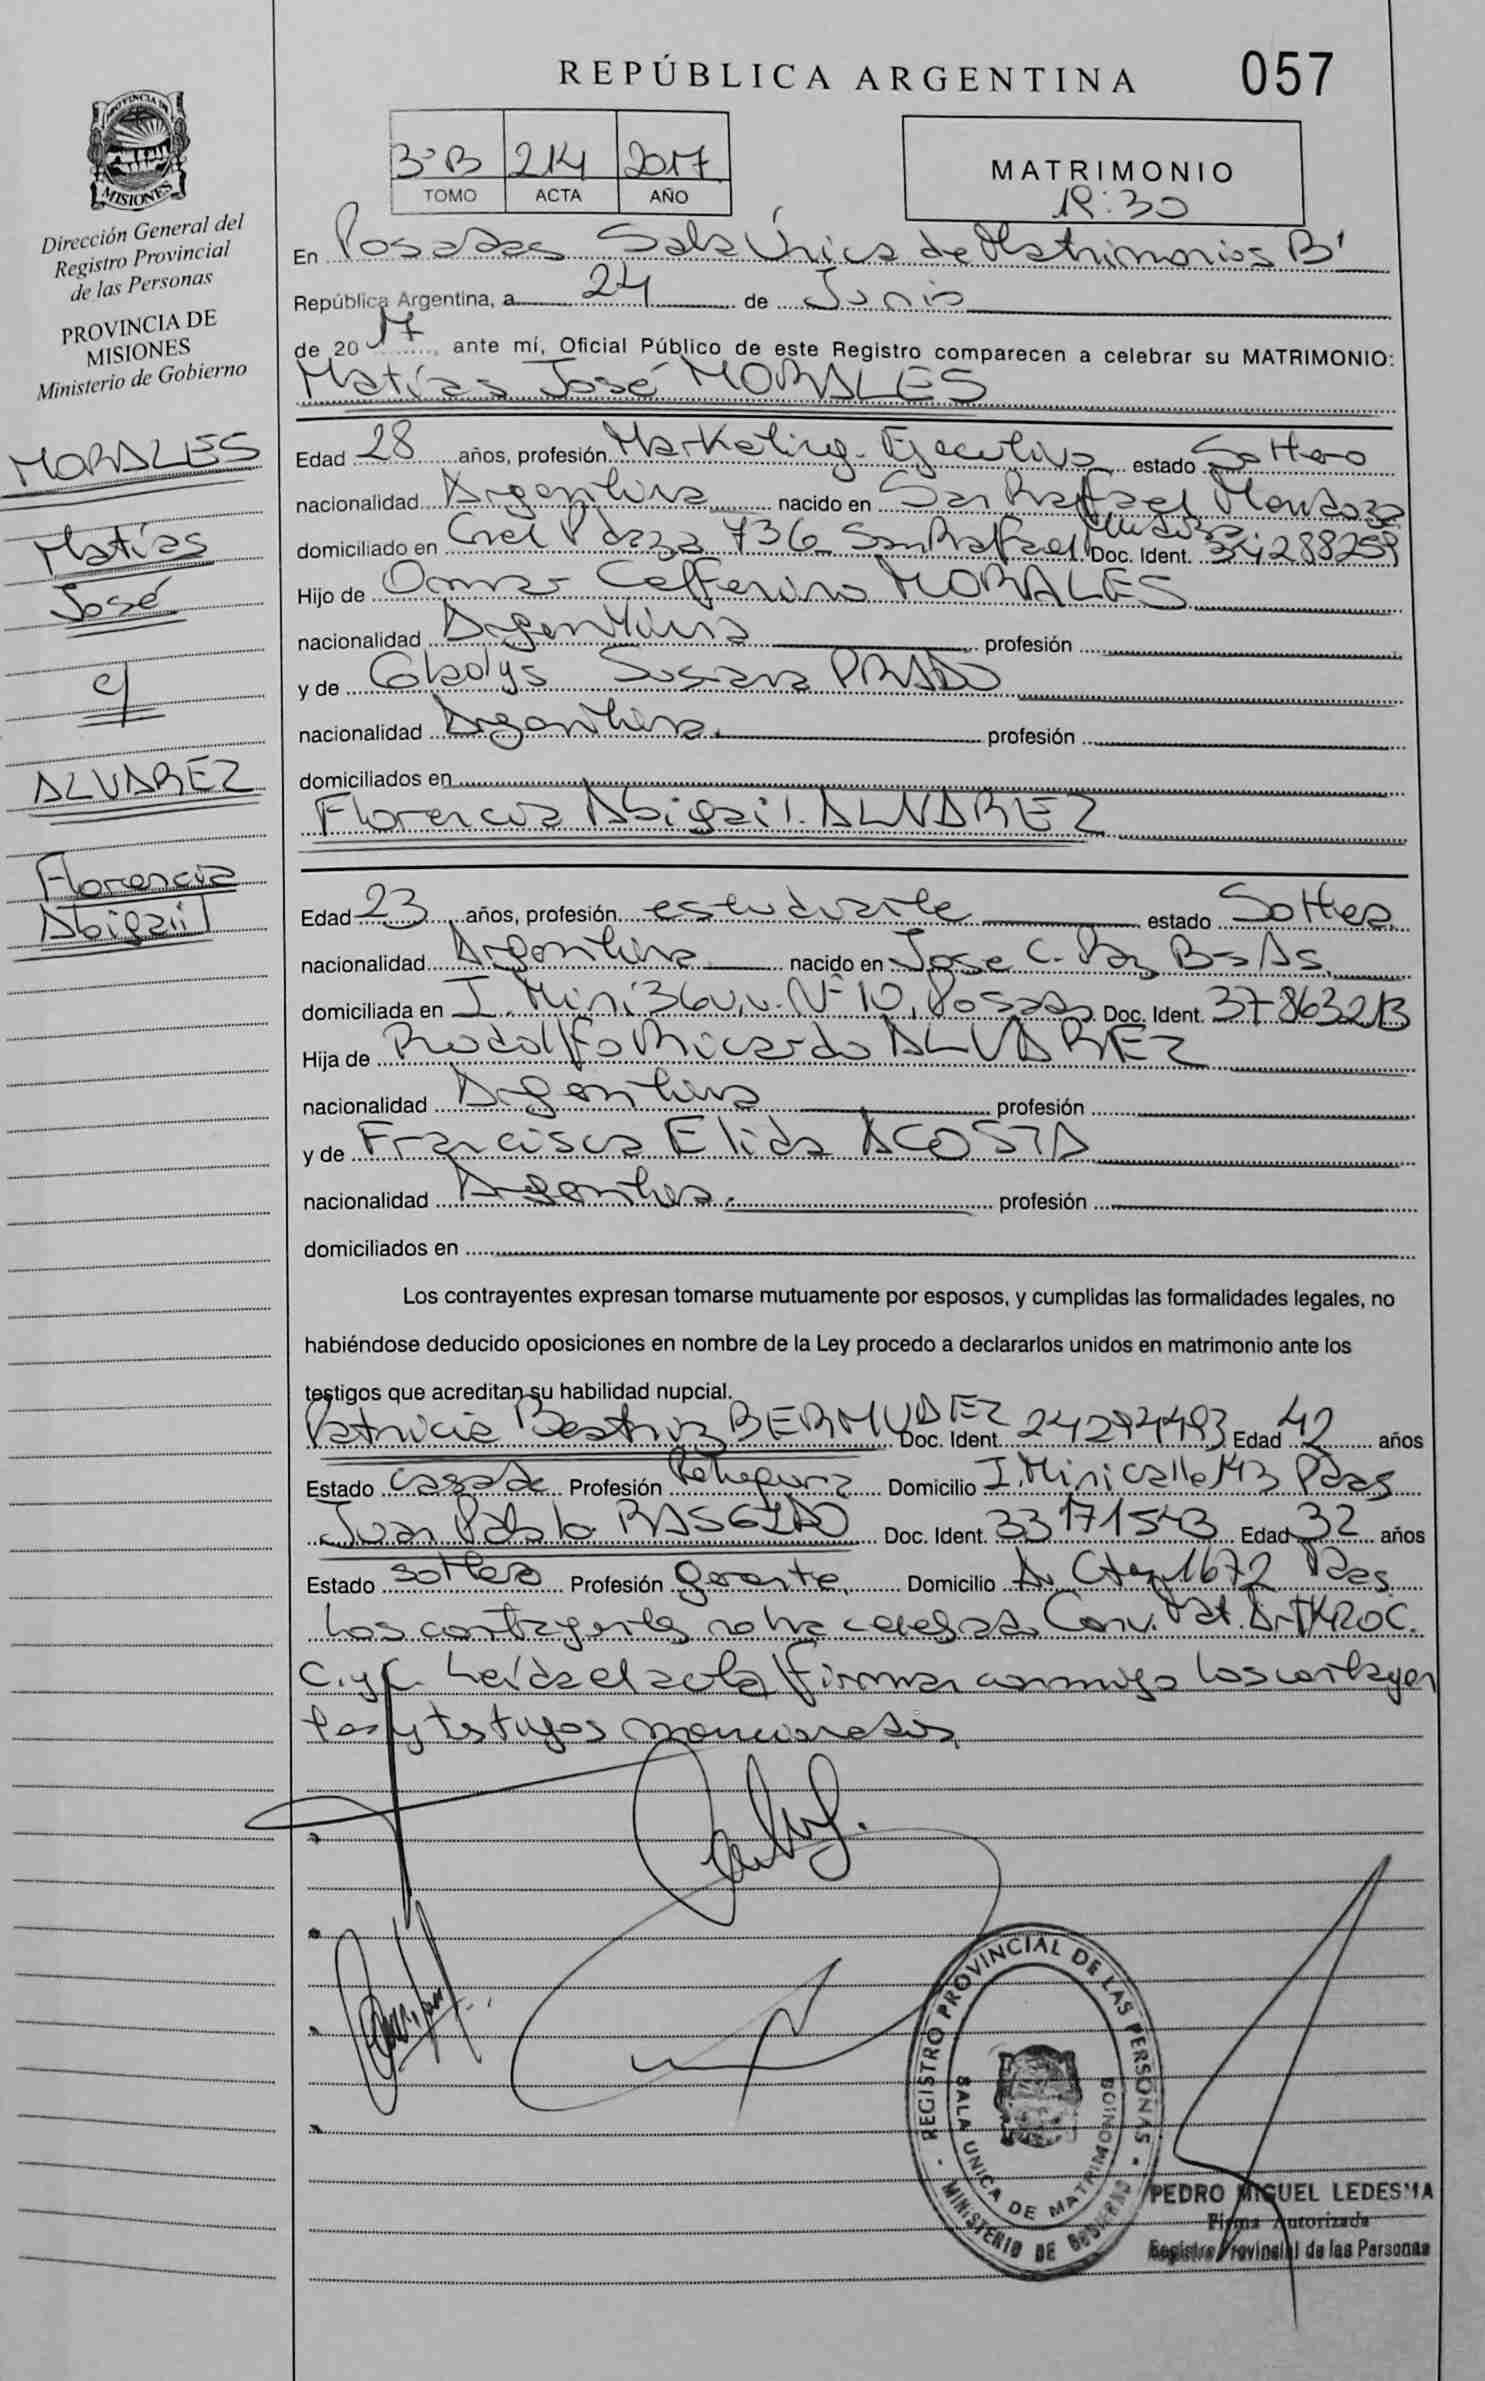 REPÚBLICA ARGENTINA 057
PROVINCIA DE
MISIONES
Dirección General del
Registro Provincial
de las Personas
PROVINCIA DE
MISIONES
Ministerio de Gobierno
MORALES
Matías
José
c/
ALVAREZ
Florencia
Abigail
3ºB 214 2017
TOMO ACTA AÑO
MATRIMONIO
19:30
En Posadas Sala Única de Matrimonios B'
República Argentina, a 24 de Junio
de 2017, ante mí, Oficial Público de este Registro comparecen a celebrar su MATRIMONIO:
Matías José MORALES
Edad 28 años, profesión Marketing-Ejecutivo estado Soltero
nacionalidad Argentina nacido en San Rafael Mendoza
domiciliado en Cnel Plaza 736 San Rafael Mendoza Doc. Ident. 34288259
Hijo de Omar Cefferino MORALES
nacionalidad Argentina profesión
y de Gladys Susana PRADO
nacionalidad Argentina profesión
domiciliados en
Florencia Abigail ALVAREZ
Edad 23 años, profesión estudiante estado Soltera
nacionalidad Argentina nacido en Jose C. Paz Bs As.
domiciliada en I. Mini 36 viv. Nº 10, Posadas Doc. Ident. 37863213
Hija de Rodolfo Ricardo ALVAREZ
nacionalidad Argentina profesión
y de Francisca Elida ACOSTA
nacionalidad Argentina profesión
domiciliados en
Los contrayentes expresan tomarse mutuamente por esposos, y cumplidas las formalidades legales, no
habiéndose deducido oposiciones en nombre de la Ley procedo a declararlos unidos en matrimonio ante los
testigos que acreditan su habilidad nupcial.
Patricia Beatriz BERMUDEZ Doc. Ident. 24294493 Edad 42 años
Estado casada Profesión Domicilio I. Mini calle 143 Pdas
Juan Pablo Doc. Ident. 33171543 Edad 32 años
Estado soltero Profesión gerente Domicilio Av 1672 Pdas.
Los contrayentes no ha celebrado Conv. Mat. Art 420C.
C.yC. Leída el acta firman conmigo los contrayen
tes y testigos mencionados
REGISTRO PROVINCIAL DE LAS PERSONAS - MINISTERIO DE GOBIERNO -
SALA UNICA DE MATRIMONIOS
PEDRO MIGUEL LEDESMA
Firma Autorizada
Registro Provincial de las Personas